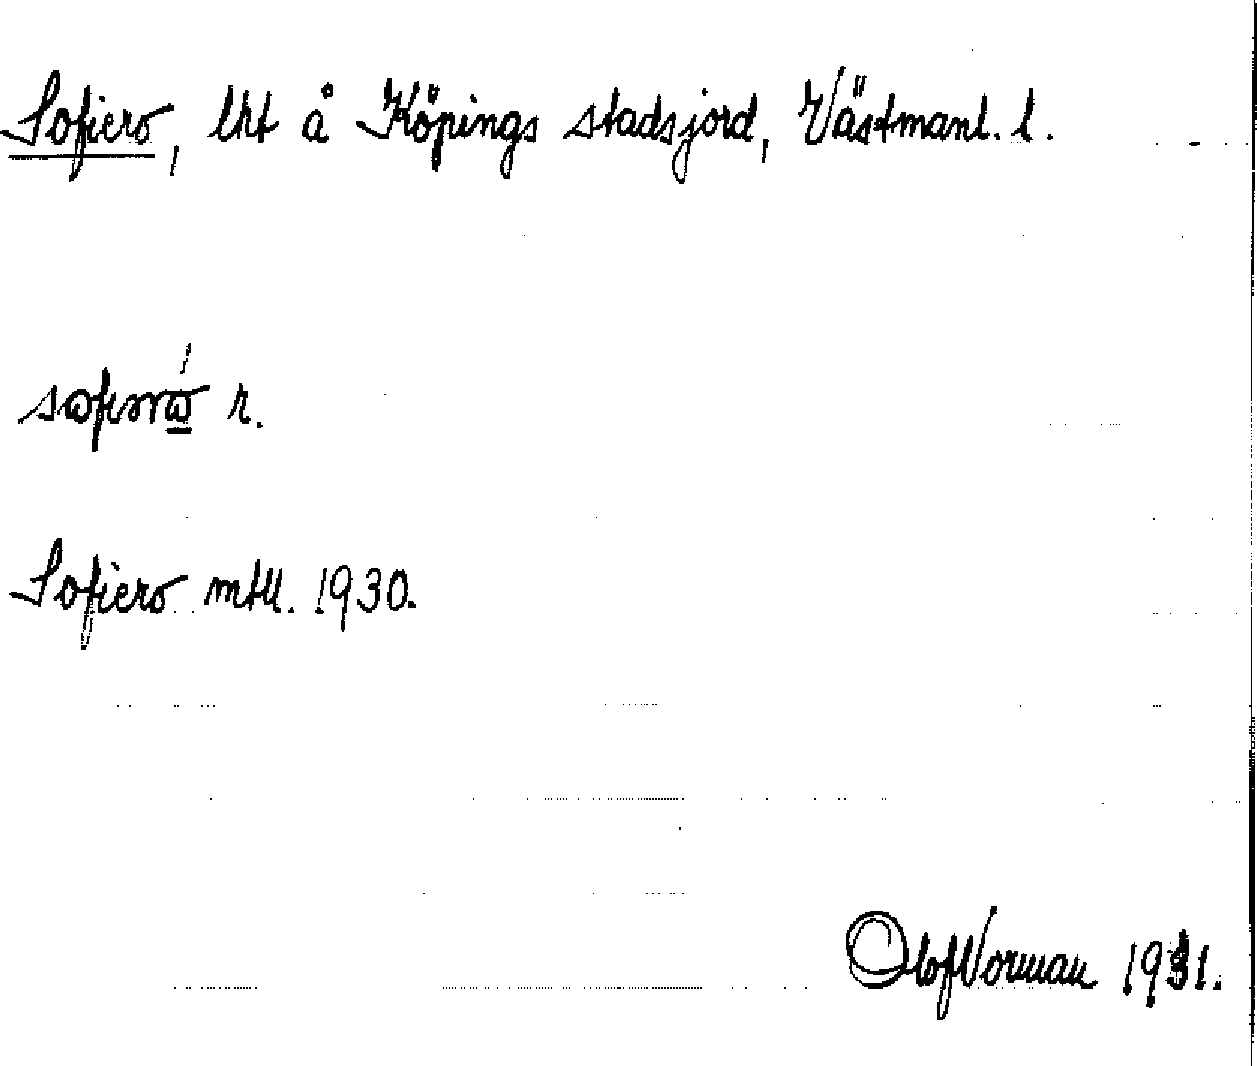 Sofiero, lht å Köpings stadsjord, Västmanl. l.
r.
Sofiero mtll. 1930.
Olof Norman 1931.